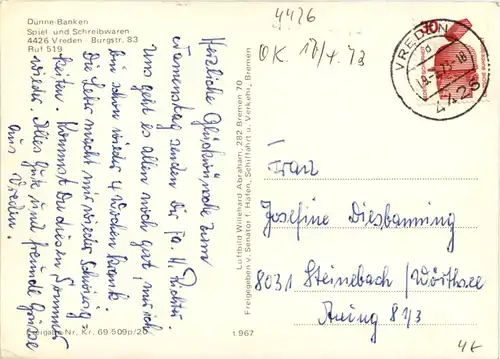 Dünne-Banken
Spiel- und Schreibwaren
4426 Vreden · Burgstr. 83
Ruf 519
4426
OK 17/4.73
VREDEN
4426
Herzliche Glückwünsche zum
Namenstag senden Dir Fa. H. Richter.
Uns geht es allen noch gut, nur ich
bin schon wieder 4 Wochen krank
Die Leber macht mir wieder Schwierig-
keiten. Kommst Du diesen Sommer
wieder. Alles Gute und freundl. Grüße
aus Vreden.
Luftbild Willehard Abraham, 282 Bremen 70
Freigegeben v. Senator f. Häfen, Schiffahrt u. Verkehr, Bremen
Frau
Josefine Diesbanning
8031 Steinebach / Wörthsee
Auing 81/3
Freigabe Nr. Kr. 69 509p/20
t.967